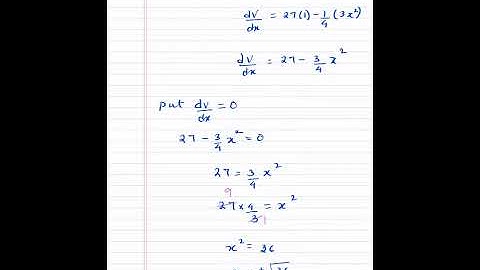 dV/dx = 27(1) - 1/4 (3x²)
dV/dx = 27 - 3/4 x²
put dv/dx = 0
27 - 3/4 x² = 0
27 = 3/4 x²
9
27 × 4/3 = x²
1
x² = 36